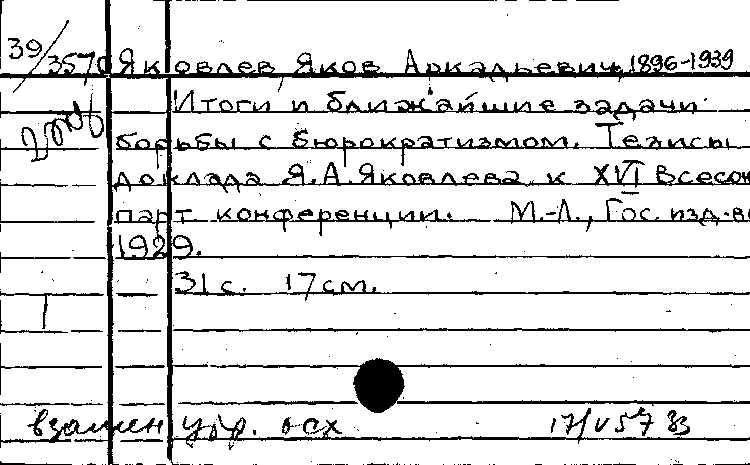 39/3570 Яковлев, Яков Аркадьевич, 1896-1939
Итоги и ближайшие задачи
борьбы с бюрократизмом. Тезисы
доклада Я.А.Яковлева к XVI Всесоюз
парт конференции. М.-Л., Гос. изд-во
1929.
31 с. 17 см.
1
взамен осх 17/V 57